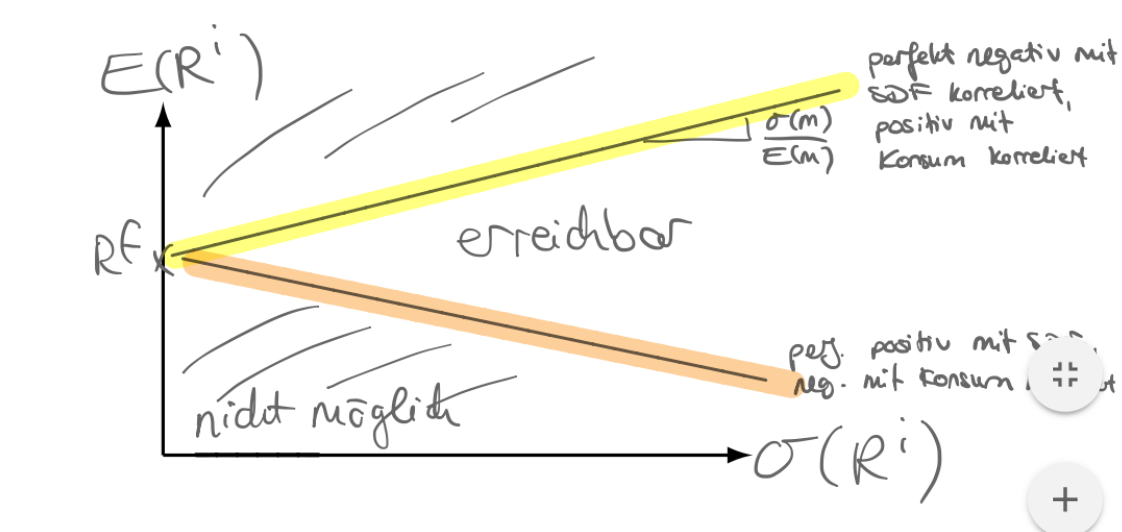 E(Rⁱ)
perfekt negativ mit
SDF korreliert,
positiv mit
Konsum korreliert
σ(m)
E(m)
erreichbar
Rᶠ
perf. positiv mit
neg. mit Konsum
nicht möglich
σ(Rⁱ)